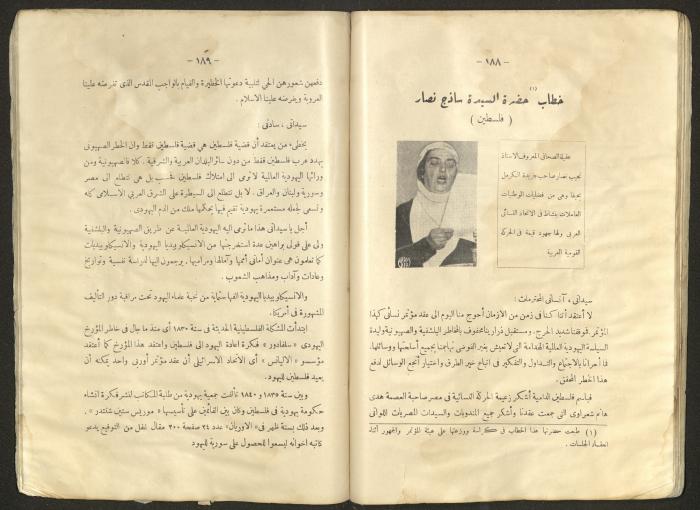 — ١٨٨ —
خطاب (١) حضرة السيدة ساذج نصار
( فلسطين )
عقيلة الصحافي المعروف الاستاذ
نجيب نصار صاحب جريدة الكرمل
بحيفا وهي من فضليات الوطنيات
العاملات بنشاط في الاتحاد النسائي
العربي ولها جهود قيمة في الحركة
القومية العربية
سيداتي ، آنساتي المحترمات :
لا أعتقد أننا كنا في زمن من الازمان أحوج منا اليوم الى عقد مؤتمر نسائي كهذا
المؤتمر فموقفنا شديد الحرج ، ومستقبل ذرارينا محفوف بالمخاطر البلشفية والصهيونية وليدة
السياسة اليهودية العالمية الهدامة التي لا تعيش بغير الفوضى تهاجمنا بجميع أسلحتها ووسائلها،
فما أحرانا بالاجتماع والتداول والتفكير في اتباع خير الطرق واختيار أنجع الوسائل لدفع
هذا الخطر المحقق.
فباسم فلسطين الدامية أشكر زعيمة الحركة النسائية في مصر صاحبة العصمة هدى
هانم شعراوي التي جمعت عقدنا وأشكر جميع المندوبات والسيدات المصريات اللواتي
(١) طبعت حضرتها هذا الخطاب في كراسة ووزعتها على هيئة المؤتمر والجمهور أثناء
انعقاد الجلسات .
— ١٨٩ —
دفعهن شعورهن الحي لتلبية دعوتها الخطيرة والقيام بالواجب المقدس الذي تفرضه علينا
العروبة ويفرضه علينا الاسلام .
سيداتي ، سادتي :
يخطىء من يعتقد أن قضية فلسطين هي قضية فلسطين فقط وان الخطر الصهيوني
يهدد عرب فلسطين فقط من دون سائر البلدان العربية والشرقية . كلا فالصهيونية ومن
ورائها اليهودية العالمية لا ترمي الى امتلاك فلسطين فحسب بل هي تتطلع الى مصر
وسورية ولبنان والعراق . لا بل تتطلع الى السيطرة على الشرق العربي الاسلامي كله
وتسعى لجعله مستعمرة يهودية تقيم فيها يحكمها ملك من الدم اليهودي .
أجل يا سيداتي هذا ما ترمي اليه اليهودية العالمية عن طريق الصهيونية والبلشفية
ولي على قولي براهين عدة استخرجتها من الانسيكلوبيديا اليهودية والانسيكلوبيديات
كما تعلمون هي عنوان أماني أمتها وآمالها ومراميها . يرجعون اليها لدراسة نفسية وتواريخ
وعادات وآداب ومذاهب الشعوب .
والانسيكلوبيديا اليهودية ألفها ستماية من نخبة علماء اليهود تحت مراقبة دور التأليف
المشهورة في أمريكا.
ابتدأت المشكلة الفلسطينية الحديثة في سنة ١٨٣٠ أي منذ ما جال في خاطر المؤرخ
اليهودي « سلفادور » فكرة اعادة اليهود الى فلسطين واعتقد هذا المؤرخ كما أعتقد
مؤسسو « الاليانس » أي الاتحاد الاسرائيلي أن عقد مؤتمر أوربي واحد يمكنه أن
يعيد فلسطين لليهود.
وبين سنة ١٨٣٥ و ١٨٤٠ تألفت جمعية يهودية من طلبة المكاتب لنشر فكرة انشاء
حكومة يهودية في فلسطين وكان بين القائمين على تأسيسها « موريس ستين شنيدر » .
وبعد ذلك بسنة ظهر في « الاوريان » عدد ٢٤ صفحة ٢٠٠ مقال غفل من التوقيع يدعو
كاتبه اخوانه ليسعوا للحصول على سورية لليهود